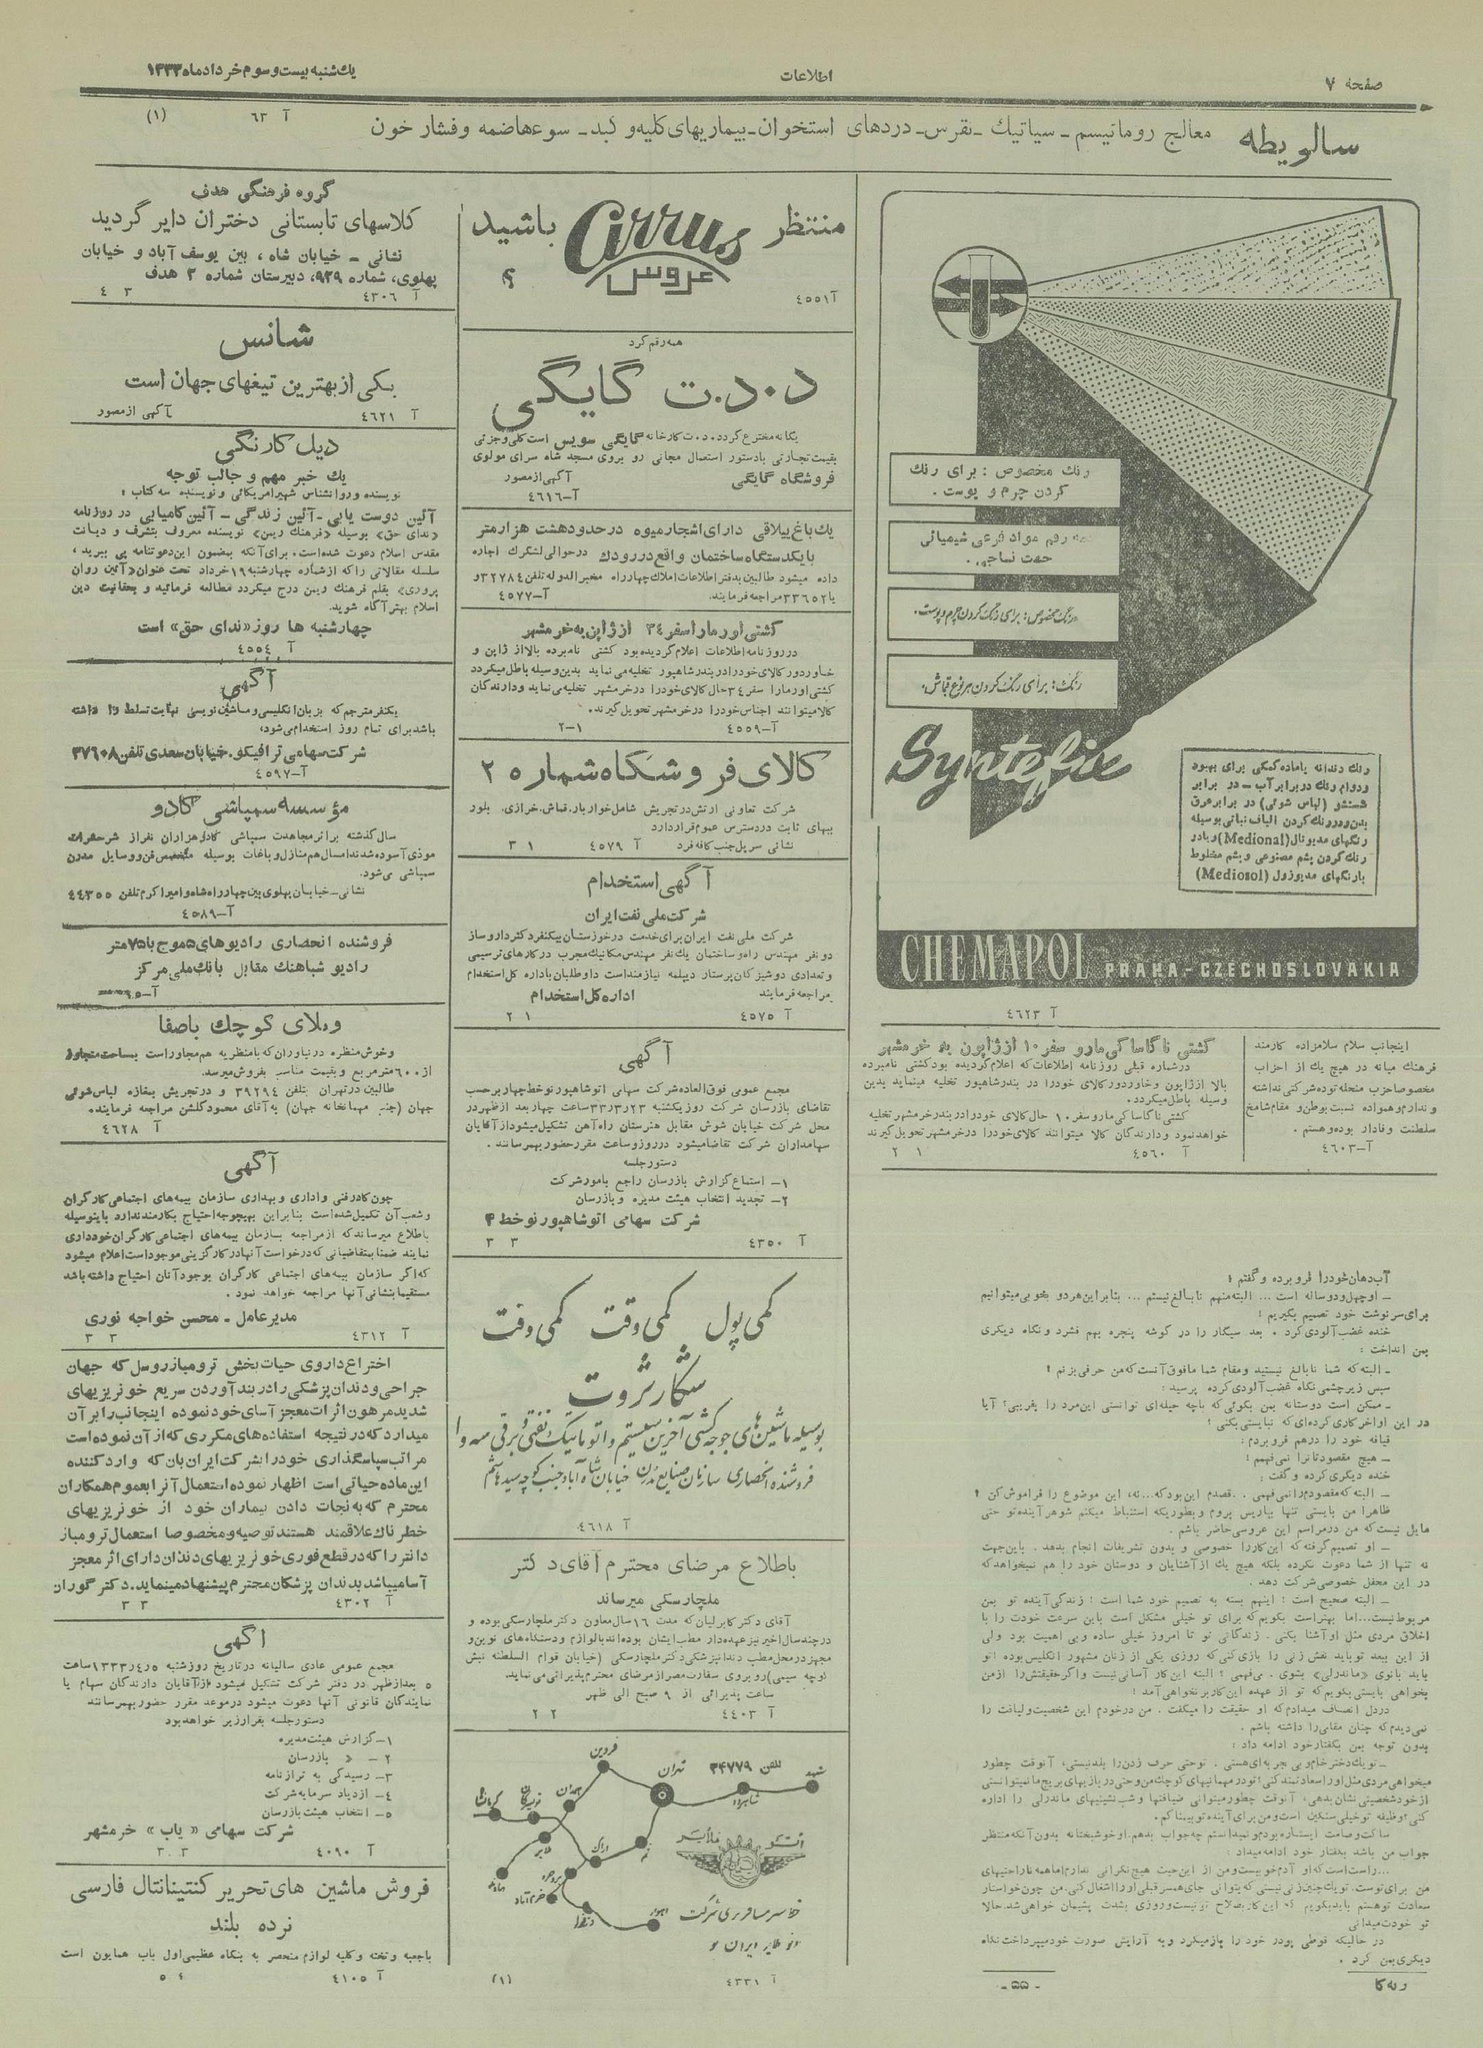 صفحه ۷
اطلاعات
یك شنبه بیست و سوم خرداد ماه ۱۳۳۳
سالویطه معالج روماتیسم ـ سیاتیك ـ نقرس ـ دردهای استخوان ـ بیماریهای کلیه و کبد ـ سوءهاضمه و فشار خون
آ ٦٣ (١)
رنك مخصوص : برای رنك
کردن چرم و پوست .
همه رقم مواد فرعی شیمیائی
جهت نساجی .
رنگ مخصوص: برای رنگ کردن چرم و پوست.
رنگ: برای رنگ کردن هر نوع قماش.
Syntefix
رنك دندانه یا ماده کمکی برای بهبود
ودوام رنك در برابر آب ـ در برابر
شستشو (لباس شوئی) در برابر عرق
بدن و رنك کردن الیاف نباتی بوسیله
رنگهای مدیونال (Medional) و یا در
رنك کردن پشم مصنوعی و پشم مخلوط
با رنگهای مدیوزول (Mediosol)
CHEMAPOL PRAHA-CZECHOSLOVAKIA
آ ٤٦٢٣
اینجانب سلام سلامزاده کارمند
فرهنك میانه در هیچ یك از احزاب
مخصوصا حزب منحله توده شرکتی نداشته
و ندارم و همواده نسبت بوطن و مقام شامخ
سلطنت وفادار بوده و هستم .
آ–٤٦٠٣
کشتی ناگاساکی مارو سفر ۱۰ از ژاپون به خرمشهر
در شماره قبلی روزنامه اطلاعات که اعلام گردیده بود کشتی نامبرده
بالا از ژاپون و خاور دور کالای خودرا در بندر شاهپور تخلیه مینماید بدین
وسیله باطل میگردد.
کشتی ناگاساکی مارو سفر ۱۰ حال کالای خودرا در بندر خرمشهر تخلیه
خواهد نمود و دارندگان کالا میتوانند کالای خودرا در خرمشهر تحویل گیرند
آ ٤٥٦٠ ١ ٢
آب دهان خودرا فرو برده و گفتم :
ـ او چهل و دو ساله است ... البته منهم نا بالغ نیستم ... بنابر این هردو بخوبی میتوانیم
برای سرنوشت خود تصمیم بگیریم !
خنده غضب آلودی کرد . بعد سیگار را در گوشه پنجره بهم فشرد و نگاه دیگری
بمن انداخت :
ـ البته که شما نا بالغ نیستید و مقام شما مافوق آنست که من حرفی بزنم !
سپس زیر چشمی نگاه غضب آلودی کرده پرسید :
ـ ممکن است دوستانه بمن بگوئی که با چه حیله ای توانستی این مرد را بفریبی؟ آیا
در این اواخر کاری کرده ای که نبایستی بکنی ؟
قیافه خود را درهم فرو بردم :
ـ هیچ مقصودتانرا نمی فهمم !
خنده دیگری کرده و گفت :
ـ البته که مقصودم را نمی فهمی . . قصدم این بود که...نه، این موضوع را فراموش کن !
ظاهرا من بایستی تنها بپاریس بروم و بطوریکه استنباط میکنم شوهر آینده تو حتی
مایل نیست که من در مراسم این عروسی حاضر باشم .
ـ او تصمیم گرفته که این کار را خصوصی و بدون تشریفات انجام بدهد . باین جهت
نه تنها از شما دعوت نکرده بلکه هیچ یك از آشنایان و دوستان خود را هم نمیخواهد که
در این محفل خصوصی شرکت دهد .
ـ البته صحیح است ! اینهم بسته به تصمیم خود شما است ! زندگی آینده تو بمن
مربوط نیست...اما بهتر است بگویم که برای تو خیلی مشکل است باین سرعت خودت را با
اخلاق مردی مثل او آشنا بکنی . زندگانی تو تا امروز خیلی ساده و بی اهمیت بود ولی
از این ببعد تو باید نقش زنی را بازی کنی که روزی یکی از زنان مشهور انگلیس بوده ! تو
باید بانوی «ماندرلی» بشوی . می فهمی ؟ البته این کار آسانی نیست و اگر حقیقتش را از من
بخواهی بایستی بگویم که تو از عهده این کار بر نخواهی آمد !
در دل انصاف میدادم که او حقیقت را میگفت . من در خودم این شخصیت و لیاقت را
نمی دیدم که چنان مقامی را داشته باشم .
بدون توجه بمن بگفتار خود ادامه داد :
ـ تو یك دختر خام و بی تجربه ای هستی . تو حتی حرف زدن را بلد نیستی، آنوقت چطور
میخواهی مردی مثل او را سعادتمند کنی؟ تو در مهمانیهای کوچك من و حتی در بازیهای بریج ما نمیتوانستی
از خود شخصیتی نشان بدهی، آنوقت چطور میتوانی ضیافتها و شب نشینیهای ماندرلی را اداره
کنی؟ وظیفه تو خیلی سنگین است و من برای آینده تو بیمناکم.
ساکت و صامت ایستاده بودم و نمیدانستم چه جواب بدهم. او خوشبختانه بدون آنکه منتظر
جواب من باشد بگفتار خود ادامه میداد :
در حالیکه قوطی پودر خود را باز میکرد و به آرایش صورت خود میپرداخت نگاه
دیگری بمن کرد .
ربه کا
- ۵۵ -
منتظر Cirrus باشید
عروس
آ ٤٥٥١
همه رقم گرد
د.د.ت گایگی
یگانه مخترع گرد د.د.ت کارخانه گایگی سویس است کلی و جزئی
بقیمت تجارتی با دستور استعمال مجانی رو بروی مسجد شاه سرای مولوی
فروشگاه گایگی آگهی از مصور
آ–٤٦١٦
یك باغ ییلاقی دارای اشجار میوه در حدود هشت هزار متر
با یکدستگاه ساختمان واقع در رودك در حوالی لشگرك اجاره
داده میشود طالبین بدفتر اطلاعات املاك چهار راه مخبرالدوله تلفن ۳۲۷۸٤ و
یا ۳۳٦٥۲ مراجعه فرمایند. آ–٤٥٧٧
کشتی اورمارا سفر ۳٤ از ژاپن به خرمشهر
در روزنامه اطلاعات اعلام گردیده بود کشتی نامبرده بالا از ژاپن و
خاور دور کالای خودرا در بندر شاهپور تخلیه می نماید بدین وسیله باطل میگردد
کشتی اورمارا سفر ۳٤ حال کالای خودرا در خرمشهر تخلیه می نماید و دارندگان
کالا میتوانند اجناس خودرا در خرمشهر تحویل گیرند.
آ–٤٥٥٩ ١–٢
کالای فروشگاه شماره ۲
شرکت تعاونی ارتش در تجریش شامل خواربار، قماش، خرازی، بلور
ببهای ثابت در دسترس عموم قرار دارد
نشانی سر پل جنب کافه فرد آ ٤٥٧٩ ١ ٣
آگهی استخدام
شرکت ملی نفت ایران
شرکت ملی نفت ایران برای خدمت در خوزستان بیکنفر دکتر داروساز
دو نفر مهندس راه و ساختمان یك نفر مهندس مکانیك مجرب در کارهای ترسیمی
و تعدادی دوشیزگان پرستار دیپلمه نیازمند است داوطلبان باداره کل استخدام
مراجعه فرمایند اداره کل استخدام
آ ٤٥٧٥ ١ ٢
آگهی
مجمع عمومی فوق العاده شرکت سهامی اتو شاهپور نو خط چهار برحسب
تقاضای بازرسان شرکت روز یکشنبه ۳۳/۳/۲۳ ساعت چهار بعد از ظهر در
محل شرکت خیابان شوش مقابل هنرستان راه آهن تشکیل میشود از آقایان
سهامداران شرکت تقاضا میشود در روز و ساعت مقرر حضور بهمرسانند .
دستور جلسه
۱– استماع گزارش بازرسان راجع بامور شرکت
۲– تجدید انتخاب هیئت مدیره و بازرسان
شرکت سهامی اتو شاهپور نو خط ۴
آ ٤٣٥٠ ٣ ٣
کمی پول کمی وقت کمی دقت
شکار ثروت
بوسیله ماشین های جوجه کشی آخرین سیستم و اتوماتیك نفتی و برقی
فروشنده انحصاری سازمان صنایع مدرن خیابان شاه آباد جنب کوچه سید هاشم
آ ٤٦١٨
باطلاع مرضای محترم آقای دکتر
ملچارسکی میرساند
آقای دکتر کابرلیان که مدت ۱٦ سال معاون دکتر ملچارسکی بوده و
در چند سال اخیر نیز عهده دار مطب ایشان بوده اند با لوازم و دستگاه های نوین و
مجهز در محل مطب دندانپزشکی دکتر ملچارسکی (خیابان قوام السلطنه نبش
کوچه سیمی) روبروی سفارت مصر از مرضای محترم پذیرائی می نماید.
ساعت پذیرائی از ۹ صبح الی ظهر
آ ٤٤٠٣ ٢ ٢
تلفن ۳۴۷۷۹
مشهد
شاهرود
تهران
قزوین
همدان
کرمانشاه
ملایر
قم
اراك
بروجرد
خرم آباد
دزفول
اهواز
خط سیر مسافربری شرکت
آ ٤٣٣١ (١)
گروه فرهنگی هدف
کلاسهای تابستانی دختران دایر گردید
نشانی ـ خیابان شاه ، بین یوسف آباد و خیابان
پهلوی، شماره ۹۲۹، دبیرستان شماره ۲ هدف
آ ٤٣٠٦ ٣ ٤
شانس
یکی از بهترین تیغهای جهان است
آ ٤٦٢١ آگهی از مصور
دیل کارنگی
یك خبر مهم و جالب توجه
نویسنده و روانشناس شهیر امریکائی و نویسنده سه کتاب :
آئین دوست یابی ـ آئین زندگی ـ آئین کامیابی در روزنامه
«ندای حق» بوسیله «فرهنك ریمن» نویسنده معروف بتشرف و دیانت
مقدس اسلام دعوت شده است. برای آنکه بمضمون این دعوتنامه پی ببرید ،
سلسله مقالاتی را که از شماره چهارشنبه ۱۹ خرداد تحت عنوان «آئین روان
پروری» بقلم فرهنك ریمن درج میگردد مطالعه فرمائید و بحقانیت دین
اسلام بهتر آگاه شوید.
چهارشنبه ها روز «ندای حق» است
آ ٤٥٥٤
آگهی
یکنفر مترجم که بزبان انگلیسی و ماشین نویسی نهایت تسلط را داشته
باشد برای تمام روز استخدام می شود،
شرکت سهامی ترافیکو. خیابان سعدی تلفن ۳۷٦۰۸
آ–٤٥٩٧
مؤسسه سمپاشی کادو
سال گذشته براثر مجاهدت سمپاشی کادو هزاران نفر از شر حشرات
موذی آسوده شدند امسال هم منازل و باغات بوسیله متخصص فن و وسایل مدرن
سمپاشی می شود.
نشانی–خیابان پهلوی بین چهار راه شاه و امیر اکرم تلفن ٤٤٣٥٥
آ–٤٥٨٩
فروشنده انحصاری رادیوهای ٥ موج با ۷۵ متر
رادیو شباهنك مقابل بانك ملی مرکز
ویلای کوچك باصفا
و خوش منظره در نیاوران که با منظریه هم مجاور است بمساحت متجاوز
از ٦٠٠ متر مربع و بقیمت مناسب بفروش میرسد.
طالبین در تهران بتلفن ۳۹۲۹٤ و در تجریش بمغازه لباس شوئی
جهان (جنب مهمانخانه جهان) به آقای محمود گلشن مراجعه فرمایند.
آ ٤٦٢٨
آگهی
چون کادر فنی و اداری و بهداری سازمان بیمه های اجتماعی کارگران
و شعب آن تکمیل شده است بنا بر این بهیچوجه احتیاج بکارمند ندارد باینوسیله
باطلاع میرساند که از مراجعه بسازمان بیمه های اجتماعی کارگران خودداری
نمایند ضمنا بمتقاضیانی که درخواست آنها در کارگزینی موجود است اعلام میشود
که اگر سازمان بیمه های اجتماعی کارگران بوجود آنان احتیاج داشته باشد
مستقیما بنشانی آنها مراجعه خواهد نمود .
مدیر عامل ـ محسن خواجه نوری
آ ٤٣١٢ ٣ ٣
اختراع داروی حیات بخش ترومباز روسل که جهان
جراحی و دندان پزشکی را در بند آوردن سریع خونریزیهای
شدید مرهون اثرات معجز آسای خود نموده اینجانب را بر آن
میدارد که در نتیجه استفاده های مکرری که از آن نموده است
مراتب سپاسگذاری خودرا بشرکت ایران بان که وارد کننده
این ماده حیاتی است اظهار نموده استعمال آنرا بعموم همکاران
محترم که به نجات دادن بیماران خود از خونریزیهای
خطرناك علاقمند هستند توصیه و مخصوصا استعمال ترومباز
دانتر را که در قطع فوری خونریزیهای دندان دارای اثر معجز
آسا میباشد بدندان پزشکان محترم پیشنهاد مینماید. دکتر گوران
آ ٤٣٠٢ ٣ ٣
آگهی
مجمع عمومی عادی سالیانه در تاریخ روز شنبه ٥ر٤ر۱۳۳۳ ساعت
٥ بعد از ظهر در دفتر شرکت تشکیل میشود از آقایان دارندگان سهام یا
نمایندگان قانونی آنها دعوت میشود در موعد مقرر حضور بهمرسانند
دستور جلسه بقرار زیر خواهد بود
۱–گزارش هیئت مدیره
۲– » بازرسان
۳– رسیدگی به ترازنامه
٤– ازدیاد سرمایه شرکت
٥– انتخاب هیئت بازرسان
شرکت سهامی «یاب» خرمشهر
آ ٤٠٩٠ ٣.٣
فروش ماشین های تحریر کنتینانتال فارسی
نرده بلند
با جعبه و تخته و کلیه لوازم منحصر به بنگاه عظیمی اول باب همایون است
آ ٤١٠٥ ٤ ٥